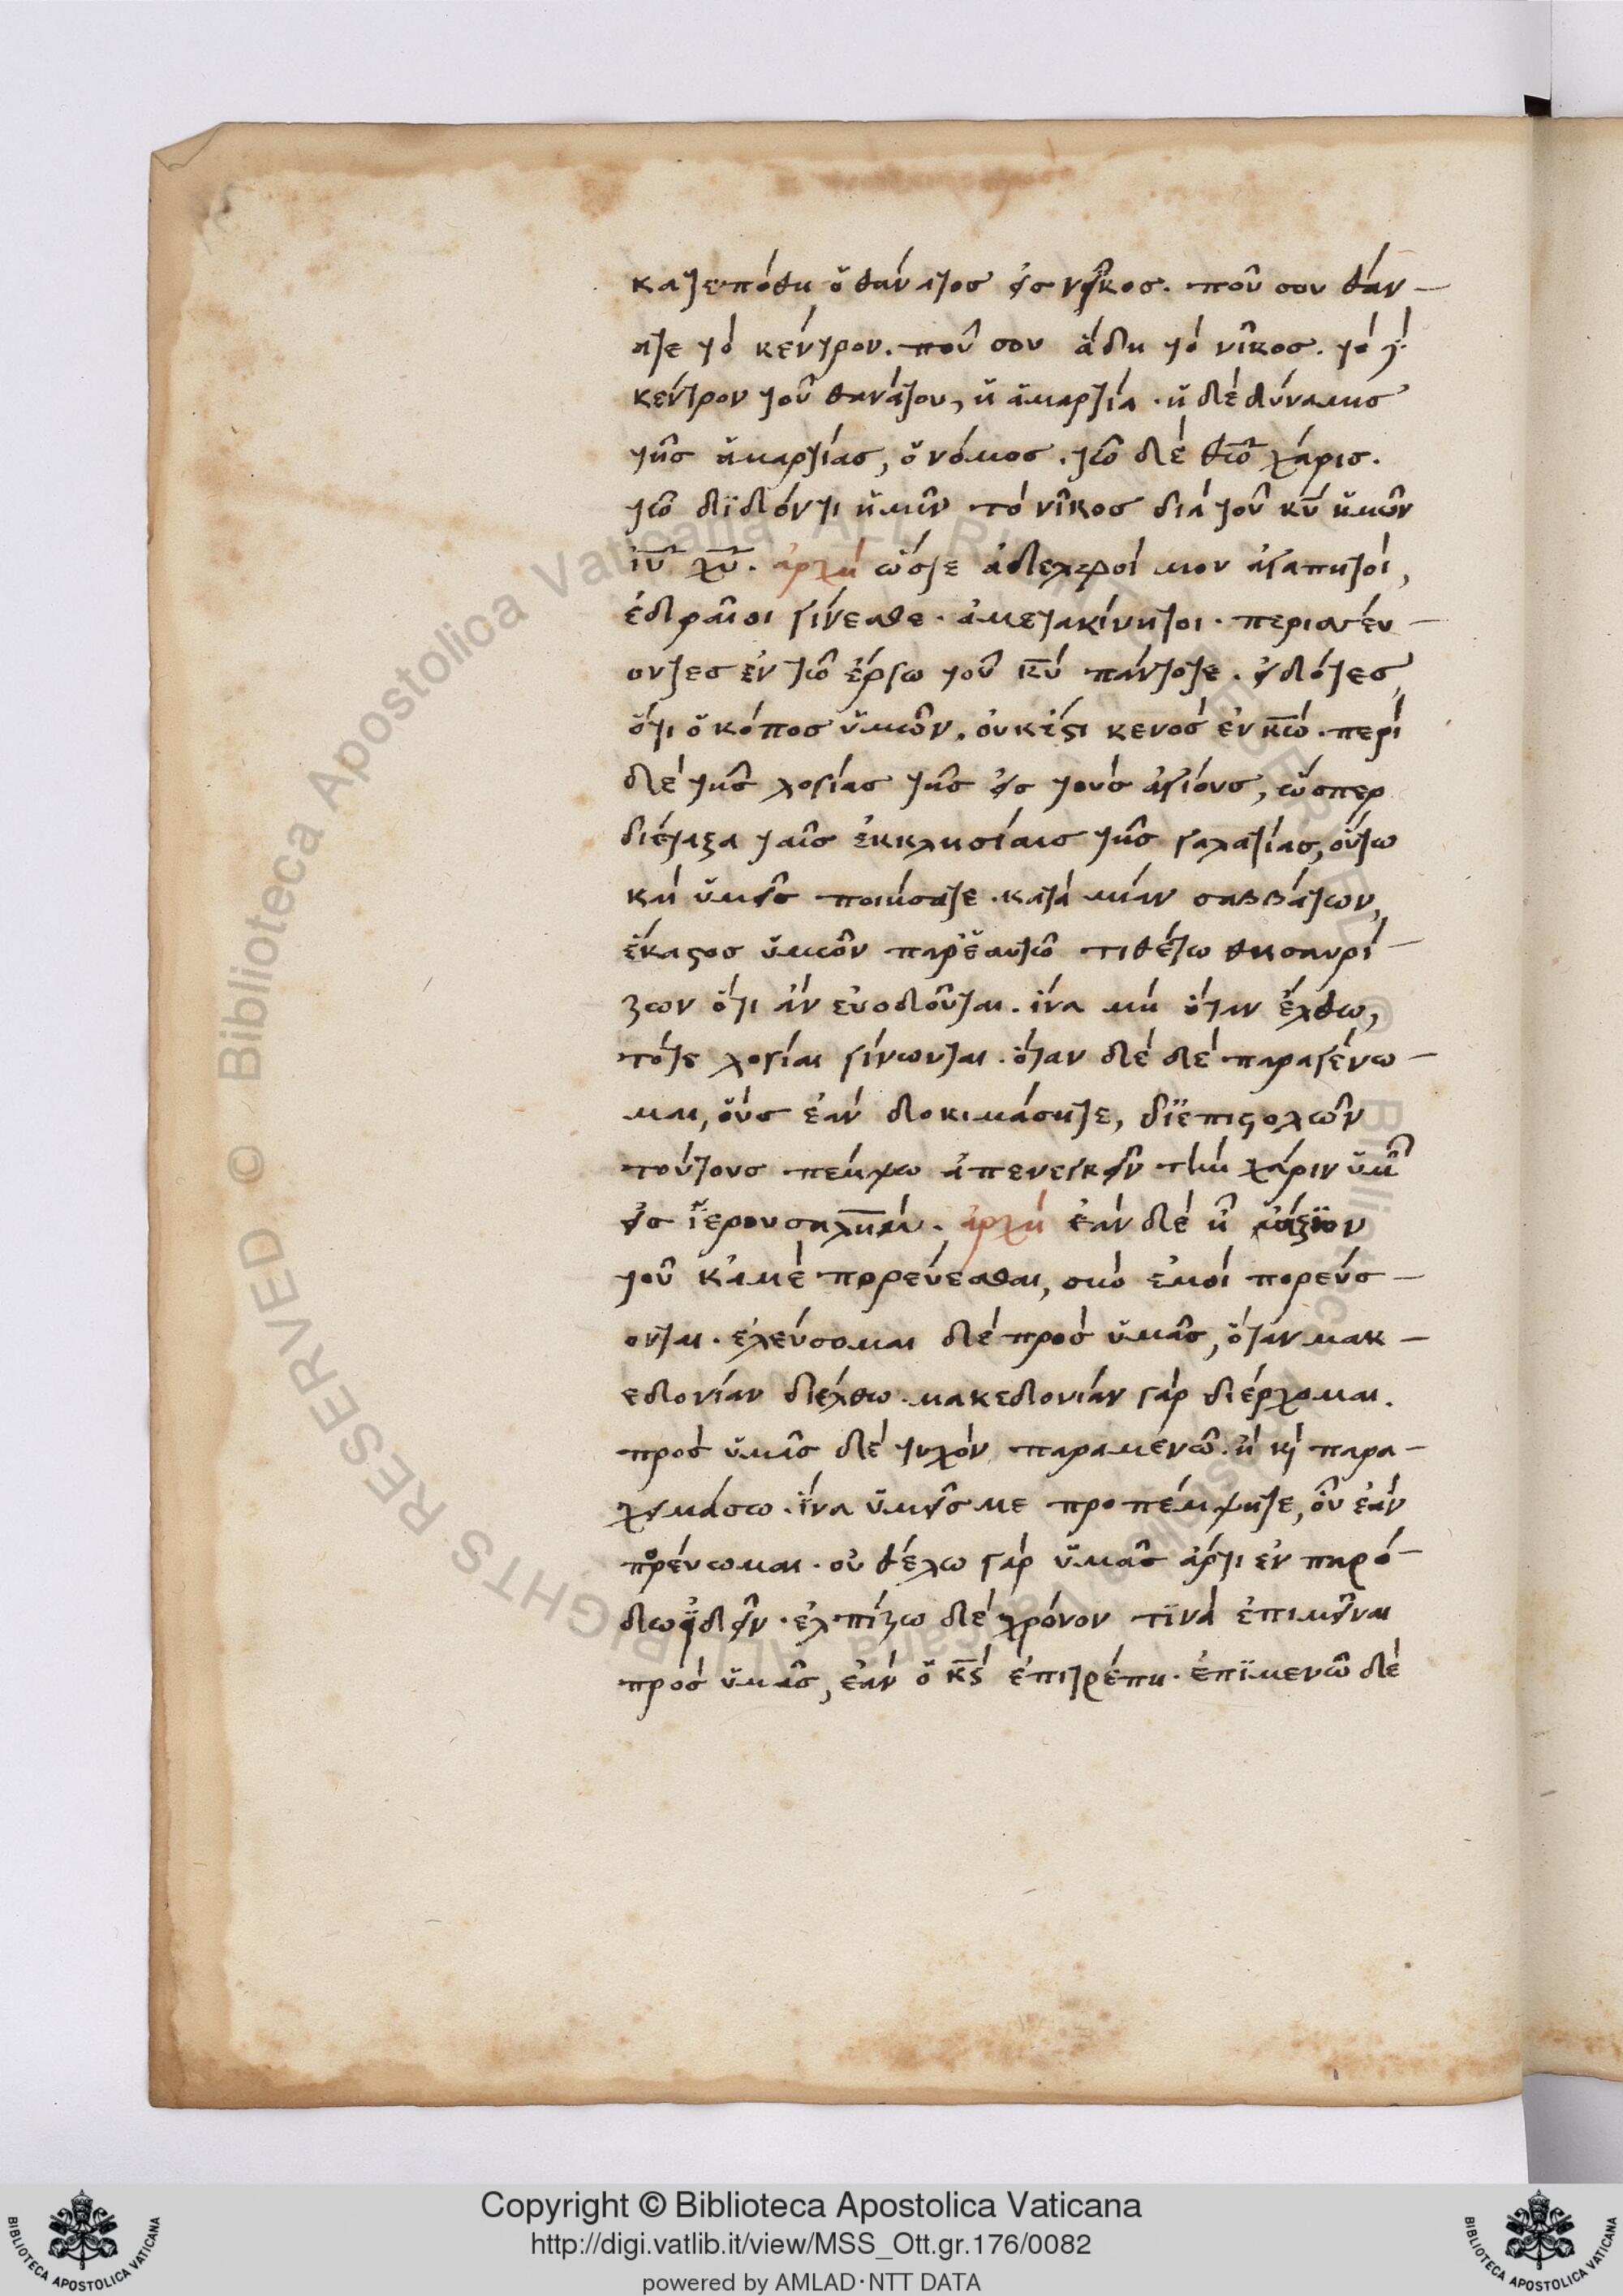 κατεπόθη ὁ θάνατος εἰς νῖκος. ποῦ σου θάν-
ατε τὸ κέντρον. ποῦ σου ἅδη τὸ νῖκος. τὸ
κέντρον τοῦ θανάτου, ἡ ἁμαρτία. ἡ δὲ δύναμις
τῆς ἁμαρτίας, ὁ νόμος. τῶ δὲ θῶ χάρις.
τῶ διδόντι ἡμῖν τὸ νῖκος διὰ τοῦ κυ ἡμῶν
ιυ χυ. ἀρχὴ ὥστε ἀδελφοί μου ἀγαπητοί,
ἑδραῖοι γίνεσθε. ἀμετακίνητοι. περισσέυ-
οντες ἐν τῶ ἔργω τοῦ κυ πάντοτε. εἰδότες,
ὅτι ὁ κόπος ὑμῶν, οὐκέστι κενὸς ἐν κω. περὶ
δὲ τῆς λογίας τῆς εἰς τοὺς ἁγίους, ὥσπερ
διέταξα ταῖς ἐκκλησίαις τῆς γαλατίας, οὕτω
καὶ ὑμεῖς ποιήσατε. κατὰ μίαν σαββάτων,
ἕκαστος ὑμῶν παρ' ἑαυτῶ τιθέτω θησαυρί-
ζων ὅτι ἂν εὐοδοῦται. ἵνα μὴ ὅταν ἔλθω,
τότε λογίαι γίνωνται. ὅταν δὲ δὲ παραγένω-
μαι, οὓς ἐὰν δοκιμάσητε, δϊ ἐπιστολῶν
τούτους πέμψω ἀπενεγκεῖν τὴν χάριν ὑμ
εἰς ϊερουσαλήμ. ἀρχὴ ἐὰν δὲ ἦ ἄξϊον
τοῦ κἀμὲ πορεύεσθαι, σὺν ἐμοὶ πορεύσ-
ονται. ἐλεύσομαι δὲ πρὸς ὑμᾶς, ὅταν μακ-
εδονίαν διέλθω. μακεδονίαν γὰρ διέρχομαι.
πρὸς ὑμᾶς δὲ τυχὸν παραμενῶ. ἢ καὶ παρα-
χειμάσω. ἵνα ὑμεῖς με προπέμψητε, οὗ ἐὰν
πορεύωμαι. οὐ θέλω γὰρ ὑμᾶς ἄρτι ἐν παρό-
δω ἰδεῖν. ἐλπίζω δὲ χρόνον τϊνὰ ἐπιμεῖναι
πρὸς ὑμᾶς, ἐὰν ὁ κς ἐπιτρέπη. ἐπϊμενῶ δὲ
Copyright © Biblioteca Apostolica Vaticana
http://digi.vatlib.it/view/MSS_Ott.gr.176/0082
powered by AMLAD·NTT DATA
BIBLIOTECA APOSTOLICA VATICANA
BIBLIOTECA APOSTOLICA VATICANA